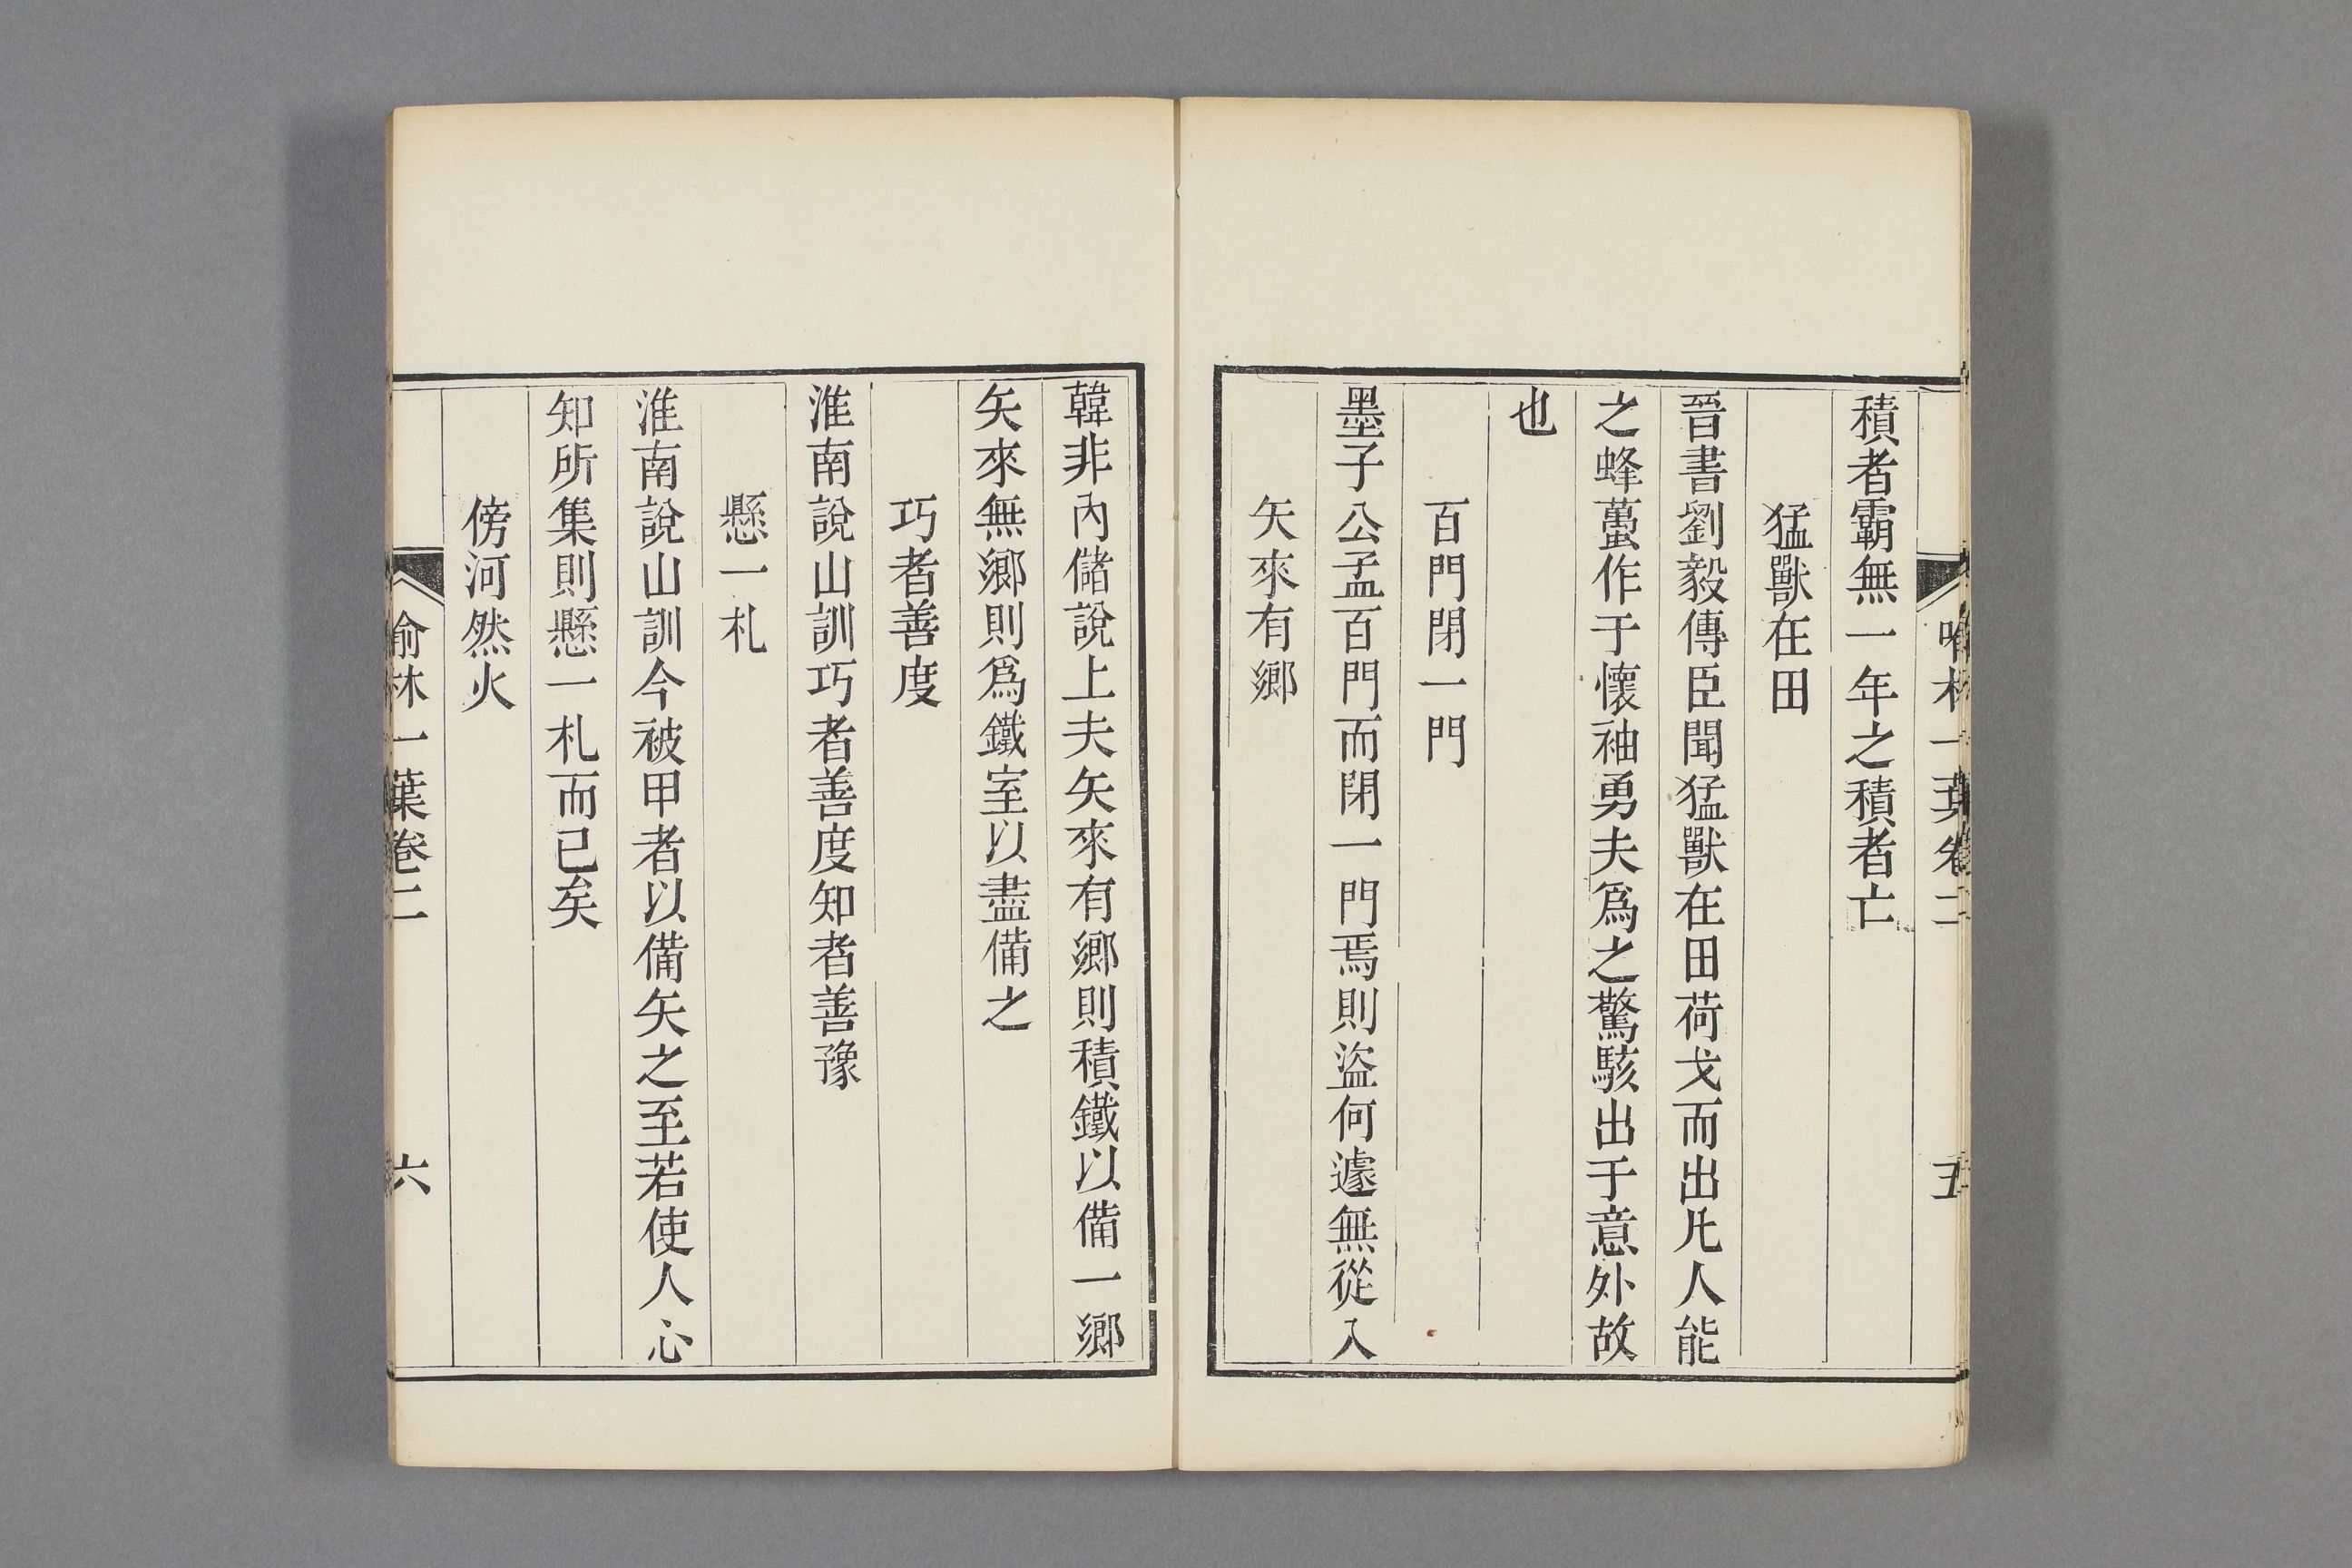 積者霸無一年之積者亡
猛獸在田
晉書劉毅傳臣聞猛獸在田荷戈而出凡人能
之蜂蠆作于懷袖勇夫爲之驚駭出于意外故
也
百門閉一門
墨子公孟百門而閉一門焉則盜何遽無從入
矢來有鄉
韓非內儲說上夫矢來有鄉則積鐵以備一鄉
矢來無鄉則爲鐵室以盡備之
巧者善度
淮南說山訓巧者善度知者善豫
懸一札
淮南說山訓今被甲者以備矢之至若使人心
知所集則懸一札而已矣
傍河然火
喻林一葉卷二
六
喻林一葉卷二
五